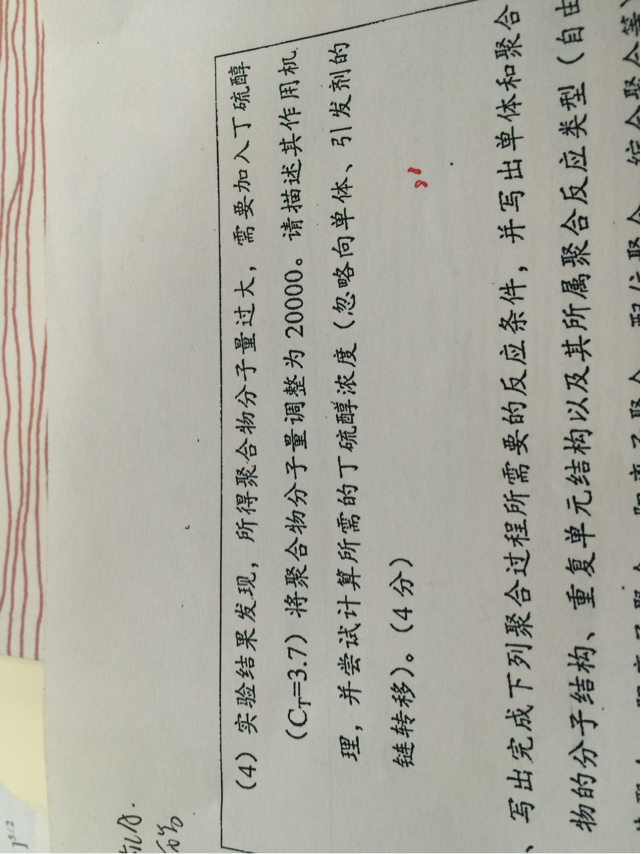 (4) 实验结果发现，所得聚合物分子量过大，需要加入丁硫醇
(C_T=3.7) 将聚合物分子量调整为 20000。请描述其作用机
理，并尝试计算所需的丁硫醇浓度（忽略向单体、引发剂的
链转移)。(4 分)
、写出完成下列聚合过程所需要的反应条件，并写出单体和聚合
物的分子结构、重复单元结构以及其所属聚合反应类型（自由
]^{3/2}